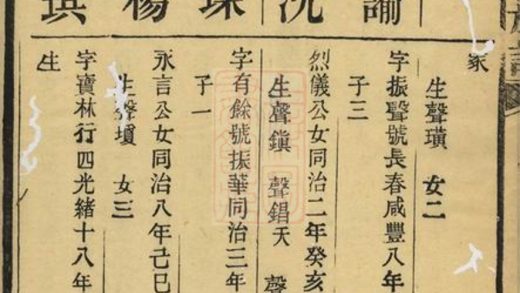 家
生聲璜 女二
諭 字振聲號長春咸豐八年
子三
沈 烈儀公女同治二年癸亥
生聲鎮 聲錩夭 聲
珠 字有餘號振華同治三年
子一
楊 永言公女同治八年己巳
生聲 女三
字寶林行四光緒十八年
生